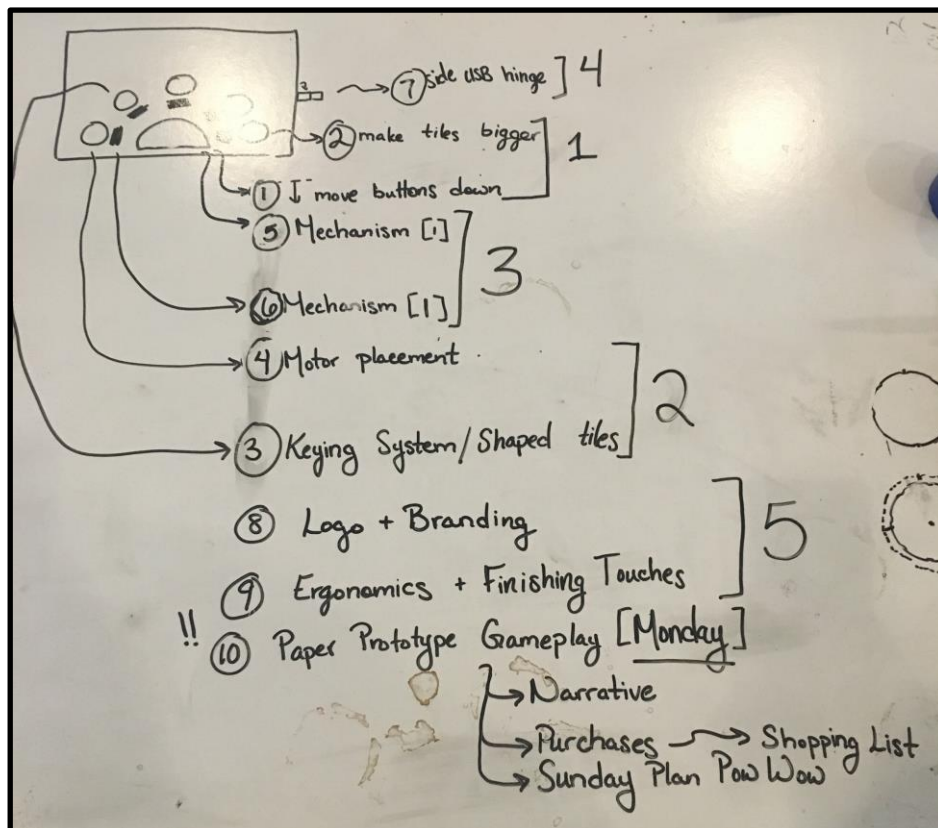 ⑦ side USB hinge ] 4
② make tiles bigger
1
① ↓ move buttons down
⑤ Mechanism [1]
3
⑥ Mechanism [1]
④ Motor placement
2
③ Keying System/Shaped tiles
⑧ Logo + Branding
5
⑨ Ergonomics + Finishing Touches
!! ⑩ Paper Prototype Gameplay [Monday]
→ Narrative
→ Purchases → Shopping List
→ Sunday Plan Pow Wow